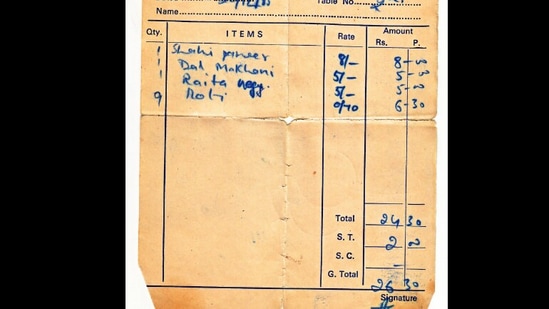 Table No.
Name
Qty. ITEMS Rate Amount
Rs. P.
1 Shahi paneer 8/- 8-00
1 Dal Makhani 5/- 5-00
1 Raita 5/- 5-00
9 Roti 0/70 6-30
Total 24 30
S. T. 2 00
S. C. —
G. Total 26 30
Signature